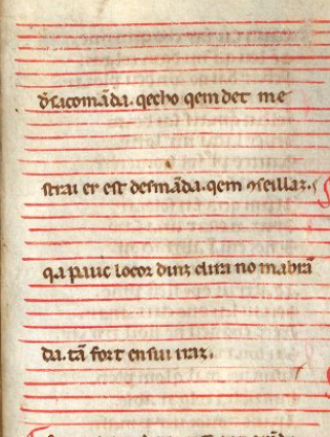 sacomāda. qecho qem det me
strai er est desmāda. qem ꝯseillaz.
q.a pauc lo cor dinz elira no mabrā
da. tā fort en sui iraz.